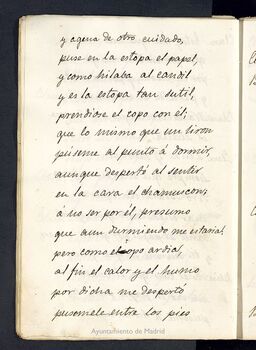 y agena de otro cuidado,
puse en la estopa el papel,
y como hilaba al candil
y es la estopa tan sutil,
prendiose el copo con él;
que lo mismo que un liron
púseme al punto á dormir,
aunque despertó al sentir
en la cara el chamuscon;
á no ser por él, presumo
que aun durmiendo me estaria!
pero como el copo ardia,
al fin el calor y el humo
por dicha me despertó
pusomele entre los pies
Ayuntamiento de Madrid